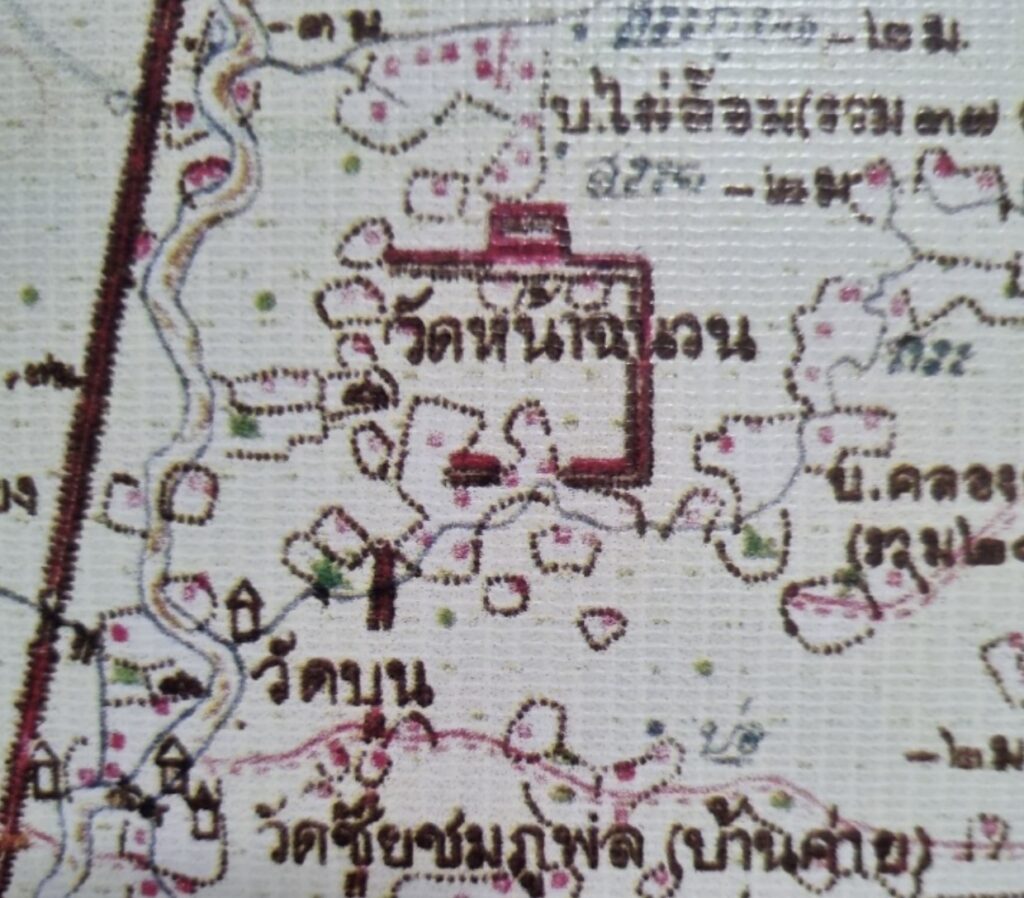 -๓ ม.
-๒ ม.
บ.ไม่ล้อม(รวม ๓๗
สระ -๒ม
วัดหน้าฉนวน
สระ
บ.คลอง
(รวม ๒๐
วัดบน
บ่อ
-๒ม
วัดชัยชมภูพล (บ้านค่าย)